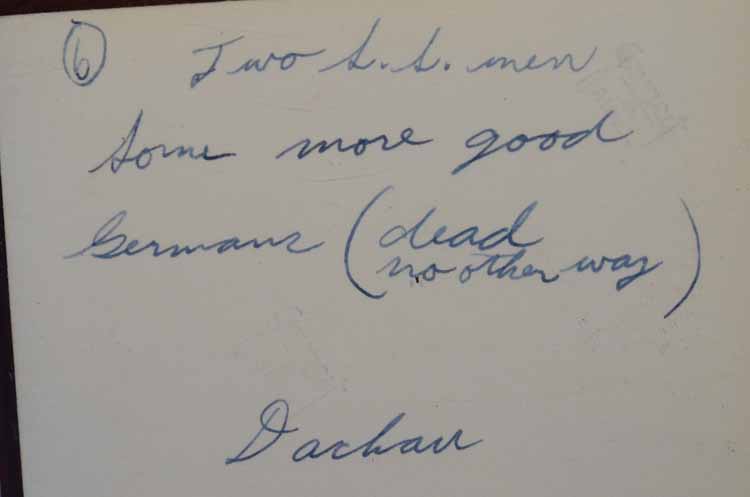 6 Two S.S. men
Some more good
Germans (dead
no other way)
Dachau